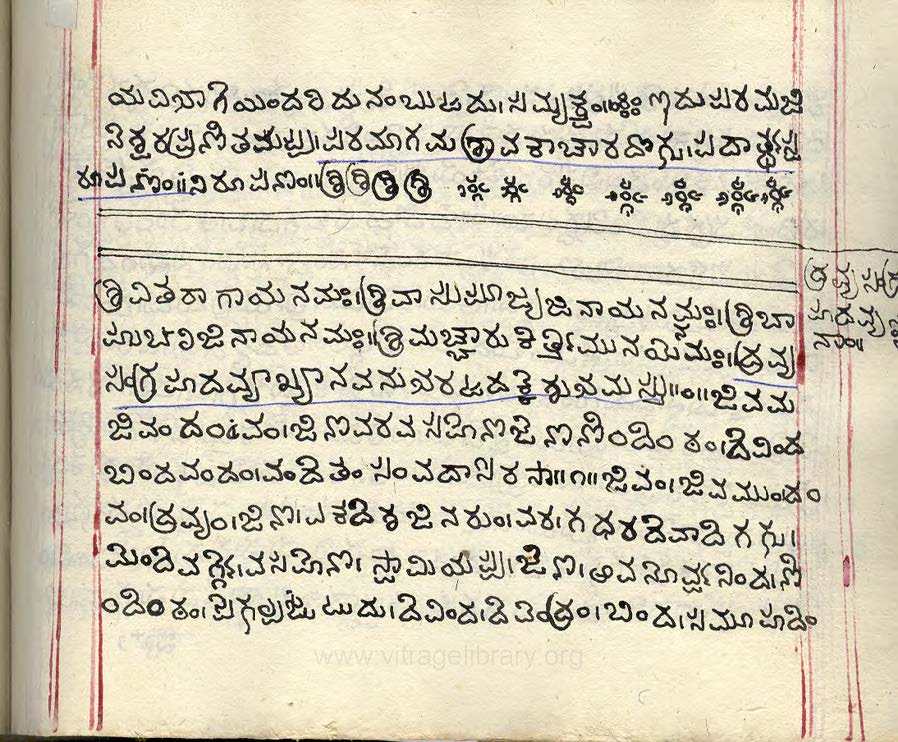 ಯ ವಿಭಾಗೆಯಿಂದರಿದು ನಂಬುಹದು। ಸಮ್ಯಕ್ತ್ವಂ। ಇದು ಪರಮಜಿ
ನೆಶ್ವರಪ್ರಣಿತಮಪ್ಪು। ಪರಮಾಗಮ ಶ್ರಾವಕಾಚಾರದೊಗ್ಗು। ಪದಾರ್ತ್ಥಸ್ವ
ರೂಪನೊಂ॥ ನಿರೂಪನೊಂ॥ ಶ್ರಿ ಶ್ರಿ ಶ್ರಿ ಶ್ರಿ
ಶ್ರಿ ವಿತರಾಗಾಯ ನಮಃ। ಶ್ರಿ ವಾಸುಪೂಜ್ಯಜಿನಾಯ ನಮಃ। ಶ್ರಿ ಬಾ
ಹುಬಲಿಜಿನಾಯ ನಮಃ। ಶ್ರಿಮಚ್ಚಾರುಕಿರ್ತ್ತಿಮುನಯೆ ನಮಃ। ದ್ರವ್ಯ
ಸಂಗ್ರಹದ ವ್ಯಾಖ್ಯಾನವನು ಬರಹದಕ್ಕೆ ಶುಭಮಸ್ತು॥ಂ॥ ಜಿವಮ
ಜಿವಂ ದಂವಂ। ಜಿನವರವಸಹೆಣ ಜೆಣ ಣಿಂದಿಂ ಠಂ। ದೆವಿಂದ
ಬಿಂದವಂದಂ। ವಂದೆ ತಂ ಸಂವದಾ ಸಿರಸಾ॥೧॥ ಜಿವಂ। ಜಿವಮುಂ। ದಂ
ವಂ। ದ್ರವ್ಯಂ। ಜಿಣ। ಎಕದೆಶ ಜಿನರುಂ। ವರ। ಗಧರದೆವಾದಿಗಗ್ಗು।
ಮೆಂದಿವರ್ಗ್ಗೆ। ವಸಹೆಣ। ಸ್ವಾಮಿಯಪ್ಪು। ಜೆಣ। ಆವನೊರ್ವ್ವನಿಂದ। ಣಿ
ಂದಿಂ ಠಂ। ಪೆಗ್ಗುಟುದು। ದೆವಿಂದ। ದೆವೆಂದ್ರಂ। ಬಿಂದ। ಸಮೂಹದಿಂ
ದ್ರವ್ಯ ಸಂಗ್ರ
ಹದ ವ್ಯ
ನಂ॥
www.vitragelibrary.org